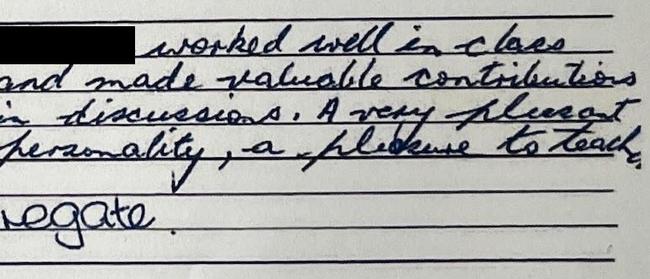 worked well in class
and made valuable contributions
in discussions. A very plesant
personality, a pleasure to teach.
regate.